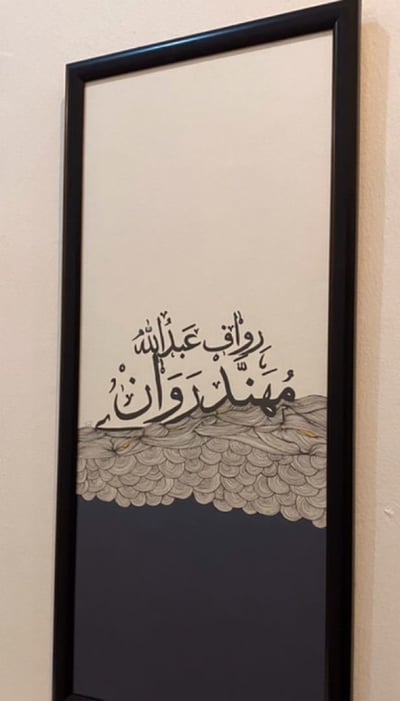 رواف عبدالله
مُهَنَّد رَوَان